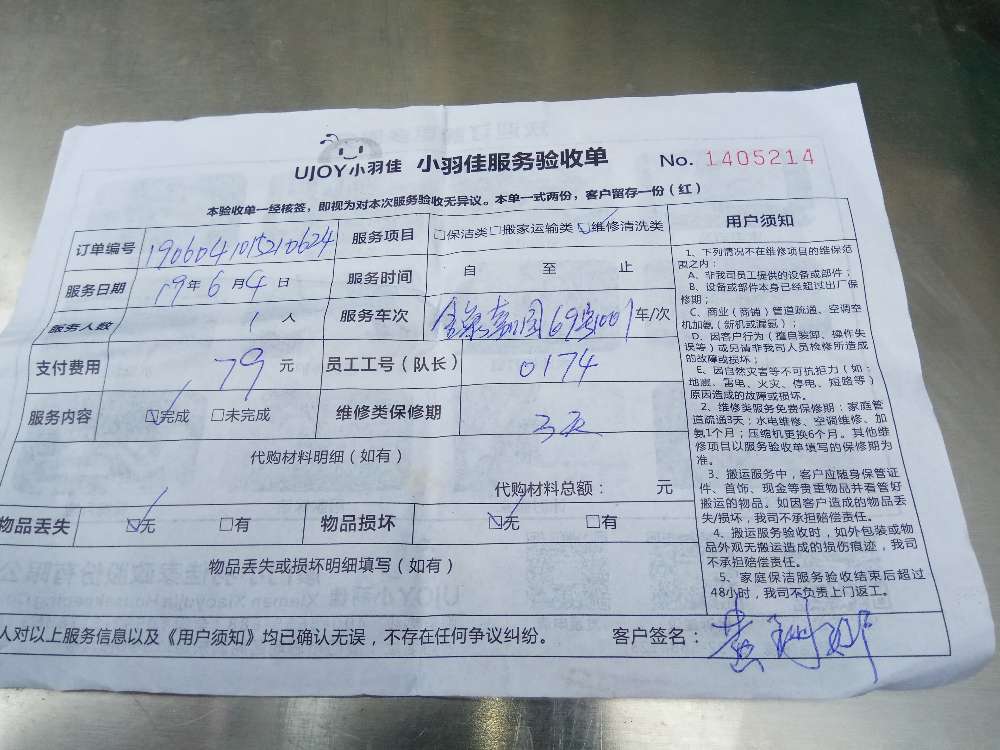 UJOY小羽佳 小羽佳服务验收单 No. 1405214
本验收单一经核签，即视为对本次服务验收无异议。本单一式两份，客户留存一份（红）
订单编号 1906041015210624 服务项目 □保洁类□搬家运输类☑维修清洗类
服务日期 19年6月4日 服务时间 自 至 止
服务人数 1人 服务车次 69 1001车/次
支付费用 79元 员工工号（队长） 0174
服务内容 ☑完成 □未完成 维修类保修期 3天
代购材料明细（如有）
代购材料总额： 元
物品丢失 ☑无 □有 物品损坏 ☑无 □有
物品丢失或损坏明细填写（如有）
人对以上服务信息以及《用户须知》均已确认无误，不存在任何争议纠纷。 客户签名：黄
用户须知
1、下列情况不在维修项目的维保范
围之内：
A、非我司员工提供的设备或部件；
B、设备或部件本身已经超过出厂保
修期；
C、商业（商铺）管道疏通、空调空
机加氨（新机或漏氨）；
D、因客户行为（擅自装卸、操作失
误等）或另请非我司人员检修所造成
的故障或损坏；
E、因自然灾害等不可抗拒力（如：
地震、雷电、火灾、停电、短路等）
原因造成的故障或损坏。
2、维修类服务免费保修期：家庭管
道疏通3天；水电维修、空调维修、加
氨1个月；压缩机更换6个月。其他维
修项目以服务验收单填写的保修期为
准。
3、搬运服务中，客户应随身保管证
件、首饰、现金等贵重物品并看管好
搬运的物品。如因客户造成的物品丢
失/损坏，我司不承担赔偿责任。
4、搬运服务验收时，如外包装或物
品外观无搬运造成的损伤痕迹，我司
不承担赔偿责任。
5、家庭保洁服务验收结束后超过
48小时，我司不负责上门返工。